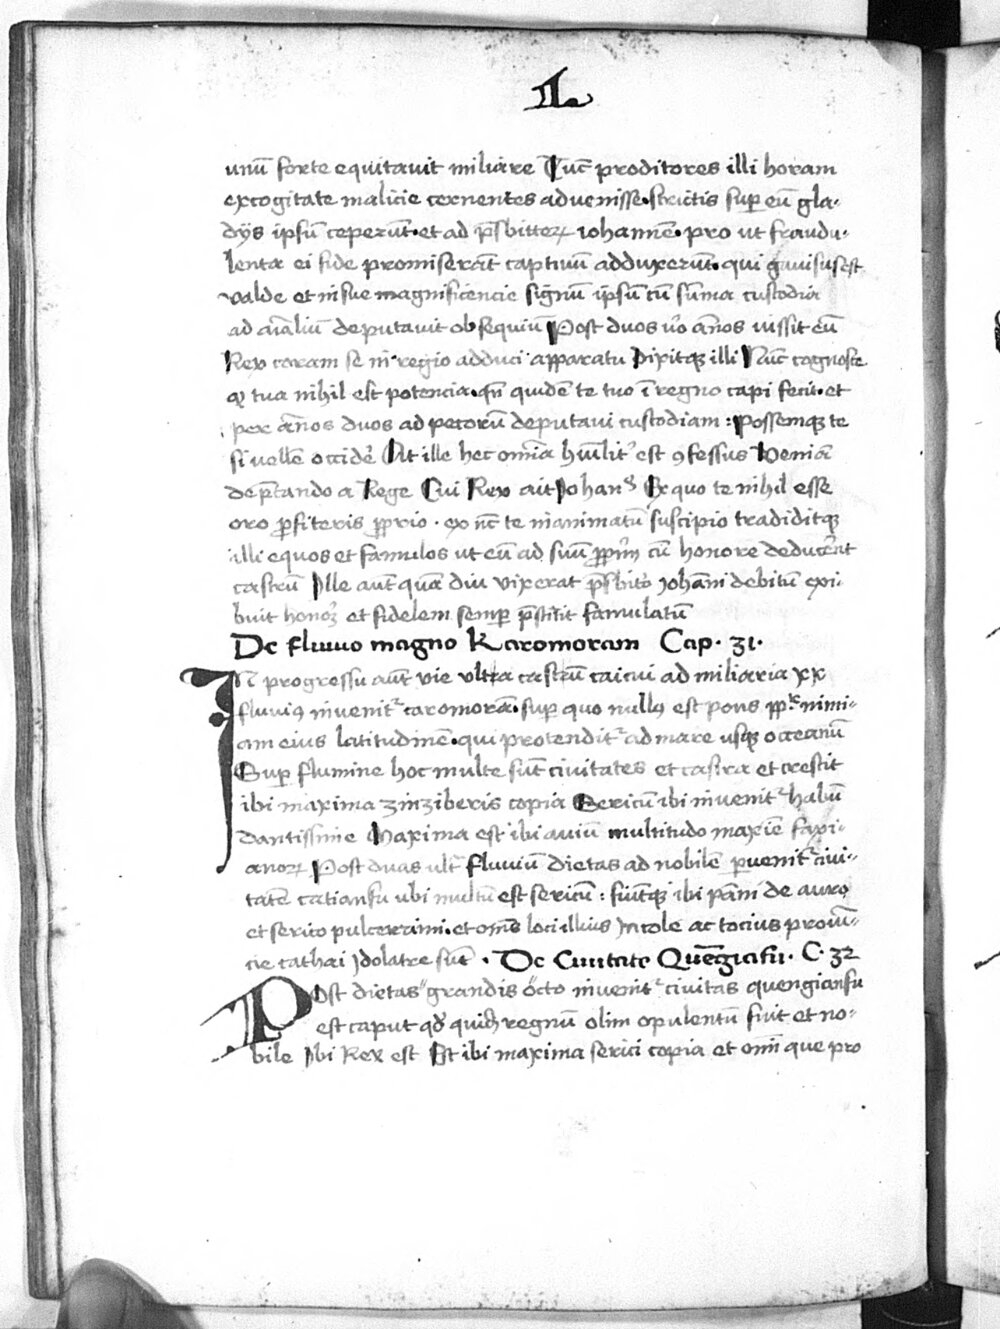 IL
unū forte equitavit miliare Tūc proditores illi horam
excogitate malicie cernentes advenisse strictis suꝑ eū gla-
dijs ipsū ceperūt et ad p̄sbitteꝝ iohannē pro ut fraudu-
lenta ei fide promiserāt captivū adduxerūt qui gavisus est
valde et in sue magnificencie signū ipsū cū sūma custodia
ad aīaliū deputavit obsequiū Post duos v̊o ānos iussit eū
Rex coram se in regio adduci apparatu Dixitqꝫ illi Nūc cognosce
qꝫ tua nihil est potencia qn̄ quidē te tuo ī regno capi feci et
per ānos duos ad pecorū deputavi custodiam : possemqꝫ te
si vellē occider̄ At ille hec omīa hūilit̉ est ꝯfessus Veniā
dep̄cando a Rege Cui Rex ait Johan̄s Ex quo te nihil esse
oro ꝓfiteris ꝓprio ex nūc te in animatū suscipio tradiditqꝫ
illi equos et famulos ut eū ad suū ꝓpriū cū honore deducer̄nt
castrū Ille aut̄ quādiu vixerat p̄sbit̉o Johāni debitū exi-
buit honoꝝ et fidelem semꝑ p̄stitit famulatū
De fluvio magno Karomoram Cap. 31.
In progressu aut̄ vie ultra castrū caicui ad miliaria xx
fluviꝰ invenitᵉ caromorā suꝑ quo nullꝰ est pons ꝓpt̉ nimi-
am eius latitudinē qui protenditᵉ ad mare usqꝫ occeanū
Suꝑ flumine hoc multe sūt civitates et castra et crescit
ibi maxima zinziberis copia Sericū ibi invenitᵉ habū
dantissime Maxima est ibi aviū multitudo maxīe faxi-
anoꝝ Post duas ult̄ fluviū dietas ad nobilē ꝑvenitᵉ civi-
tatē catiansu ubi multū est sericū : fiūtqꝫ ibi pāni de auro
et serico pulcerrimi et om̄s loci illius Incole ac tocius provī-
cie cathai Idolatre sūt . De Civitate Quēgiāfu . C. 32
Post dietas grandis octo invenitᵉ civitas quengianfu
est caput qđ quidē regnū olim opulentū fuit et no-
bile Ibi Rex est Est ibi maxima serici copia et omī que pro